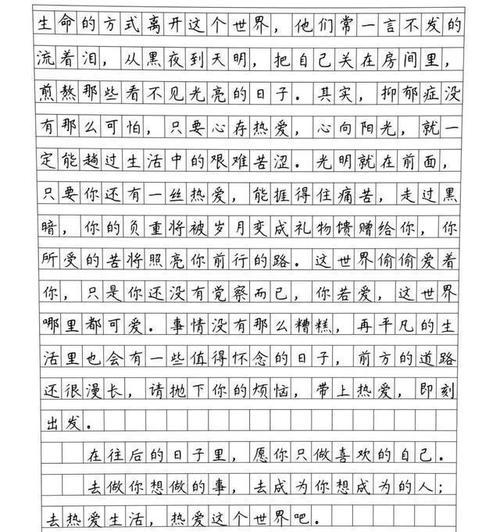 生命的方式离开这个世界，他们常一言不发的
流着泪，从黑夜到天明，把自己关在房间里，
煎熬那些看不见光亮的日子。其实，抑郁症没
有那么可怕，只要心存热爱，心向阳光，就一
定能趟过生活中的艰难苦涩。光明就在前面，
只要你还有一丝热爱，能捱得住痛苦，走过黑
暗，你的负重将被岁月变成礼物馈赠给你，你
所受的苦将照亮你前行的路。这世界偷偷爱着
你，只是你还没有觉察而已，你若爱，这世界
哪里都可爱。事情没有那么糟糕，再平凡的生
活里也会有一些值得怀念的日子，前方的道路
还很漫长，请抛下你的烦恼，带上热爱，即刻
出发。
在往后的日子里，愿你只做喜欢的自己。
去做你想做的事，去成为你想成为的人；
去热爱生活，热爱这个世界吧。